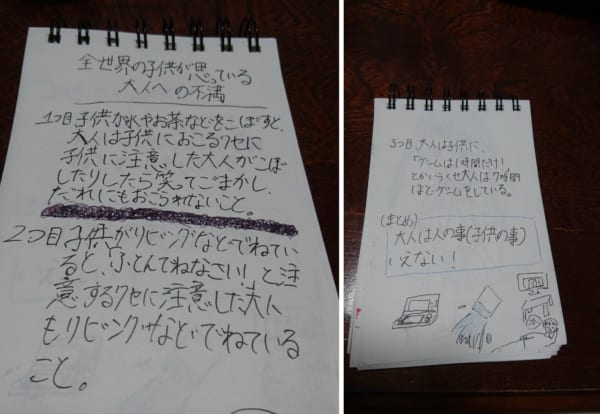 全世界の子供が思っている
大人への不満
1つ目子供が水やお茶などをこぼすと、
大人は子供におこるクセに
子供に注意した大人がこぼ
したりしたら笑ってごまかし、
だれにもおこられないこと。
2つ目子供がリビングなどでねてい
ると、「ふとんでねなさい!」と注
意するクセに注意した大人
もリビングなどでねている
こと。
3つ目、大人は子供に、
「ゲームは1時間だけ!」
とかいうくせ大人は7時間
ほどゲームをしている。
(まとめ)
大人は人の事(子供の事)
いえない!